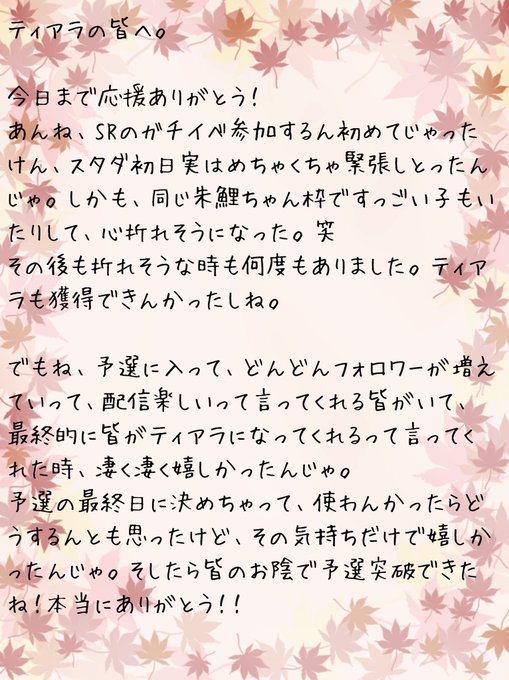 ティアラの皆へ。
今日まで応援ありがとう!
あんね、SRのガチイベ参加するん初めてじゃった
けん、スタダ初日実はめちゃくちゃ緊張しとったん
じゃ。しかも、同じ朱鯉ちゃん枠ですっごい子もい
たりして、心折れそうになった。笑
その後も折れそうな時も何度もありました。ティア
ラも獲得できんかったしね。
でもね、予選に入って、どんどんフォロワーが増え
ていって、配信楽しいって言ってくれる皆がいて、
最終的に皆がティアラになってくれるって言ってく
れた時、凄く凄く嬉しかったんじゃ。
予選の最終日に決めちゃって、使わんかったらど
うするんとも思ったけど、その気持ちだけで嬉しか
ったんじゃ。そしたら皆のお陰で予選突破できた
ね!本当にありがとう!!